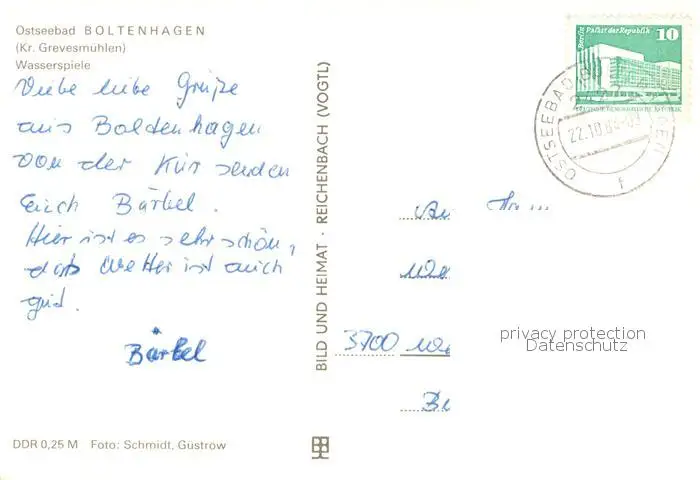 Ostseebad BOLTENHAGEN
(Kr. Grevesmühlen)
Wasserspiele
Viele liebe Grüße
aus Boldenhagen
von der Kur senden
Euch Bärbel.
Hier ist es sehr schön,
das Wetter ist auch
gut.
Bärbel
DDR 0,25 M Foto: Schmidt, Güstrow
BILD UND HEIMAT · REICHENBACH (VOGTL)
Berlin Palast der Republik
10
OSTSEEBAD
22.10.8
f
3700
privacy protection
Datenschutz